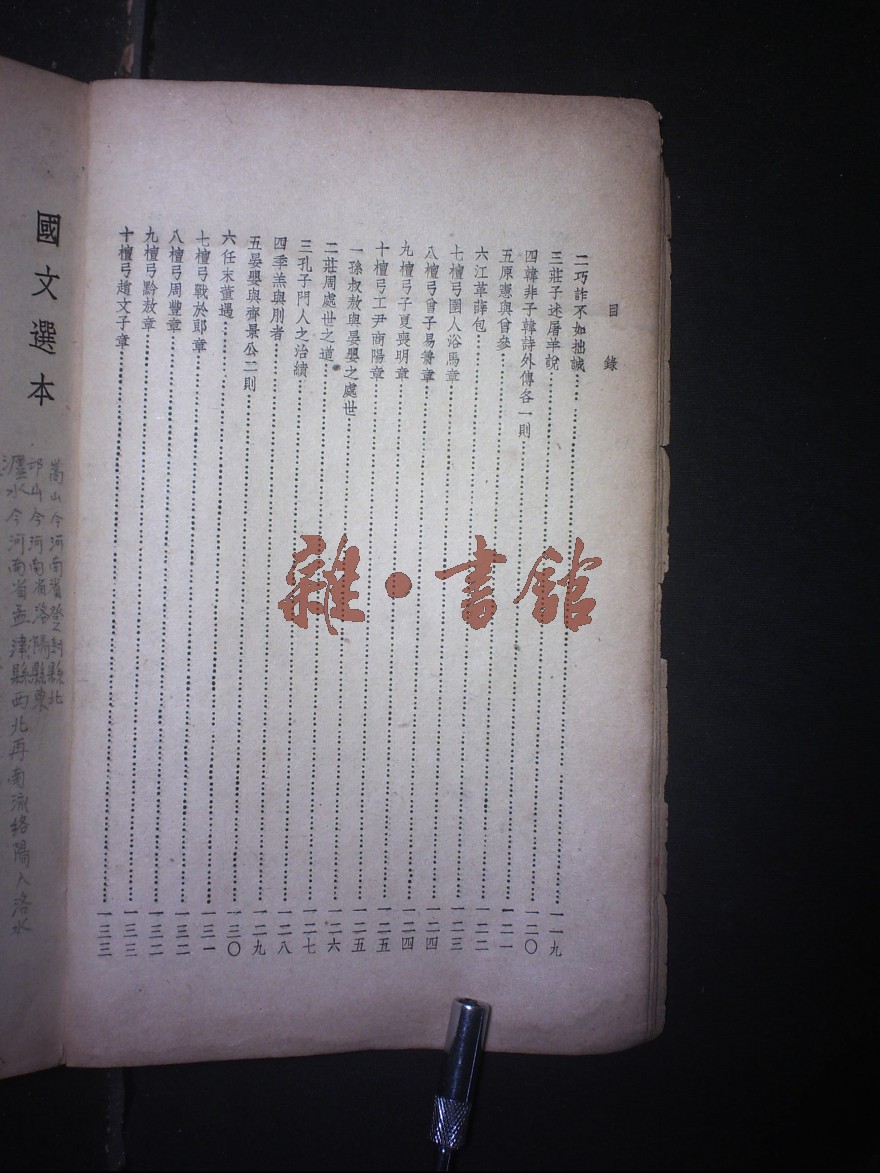 目錄
二巧詐不如拙誠……一一九
三莊子述屠羊說……一二〇
四韓非子韓詩外傳各一則……一二一
五原憲與曾參……一二二
六江革薛包……一二三
七檀弓圉人浴馬章……一二四
八檀弓曾子易簀章……一二四
九檀弓子夏喪明章……一二五
十檀弓工尹商陽章……一二五
一孫叔敖與晏嬰之處世……一二六
二莊周處世之道……一二七
三孔子門人之治績……一二八
四季羔與刖者……一二九
五晏嬰與齊景公二則……一三〇
六任末董遇……一三一
七檀弓戰於郎章……一三二
八檀弓周豐章……一三二
九檀弓黔敖章……一三三
十檀弓趙文子章……一三三
雜·書館
國文選本
嵩山今河南省登封縣北
邙山今河南省洛陽縣東
瀍水今河南省孟津縣西北再南流經洛陽入洛水